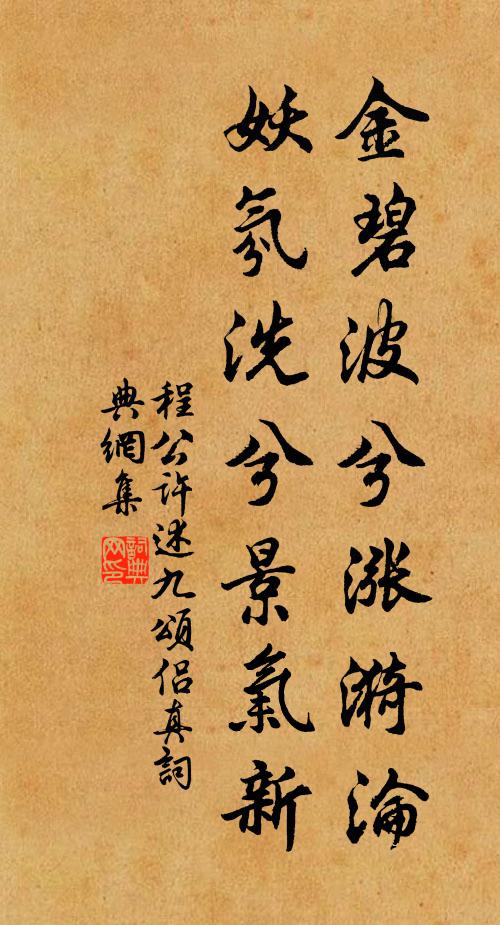 金碧波兮漲漪淪
妖氛洗兮景氣新
程公許述九頌侶真詞
典網集
詞典網印